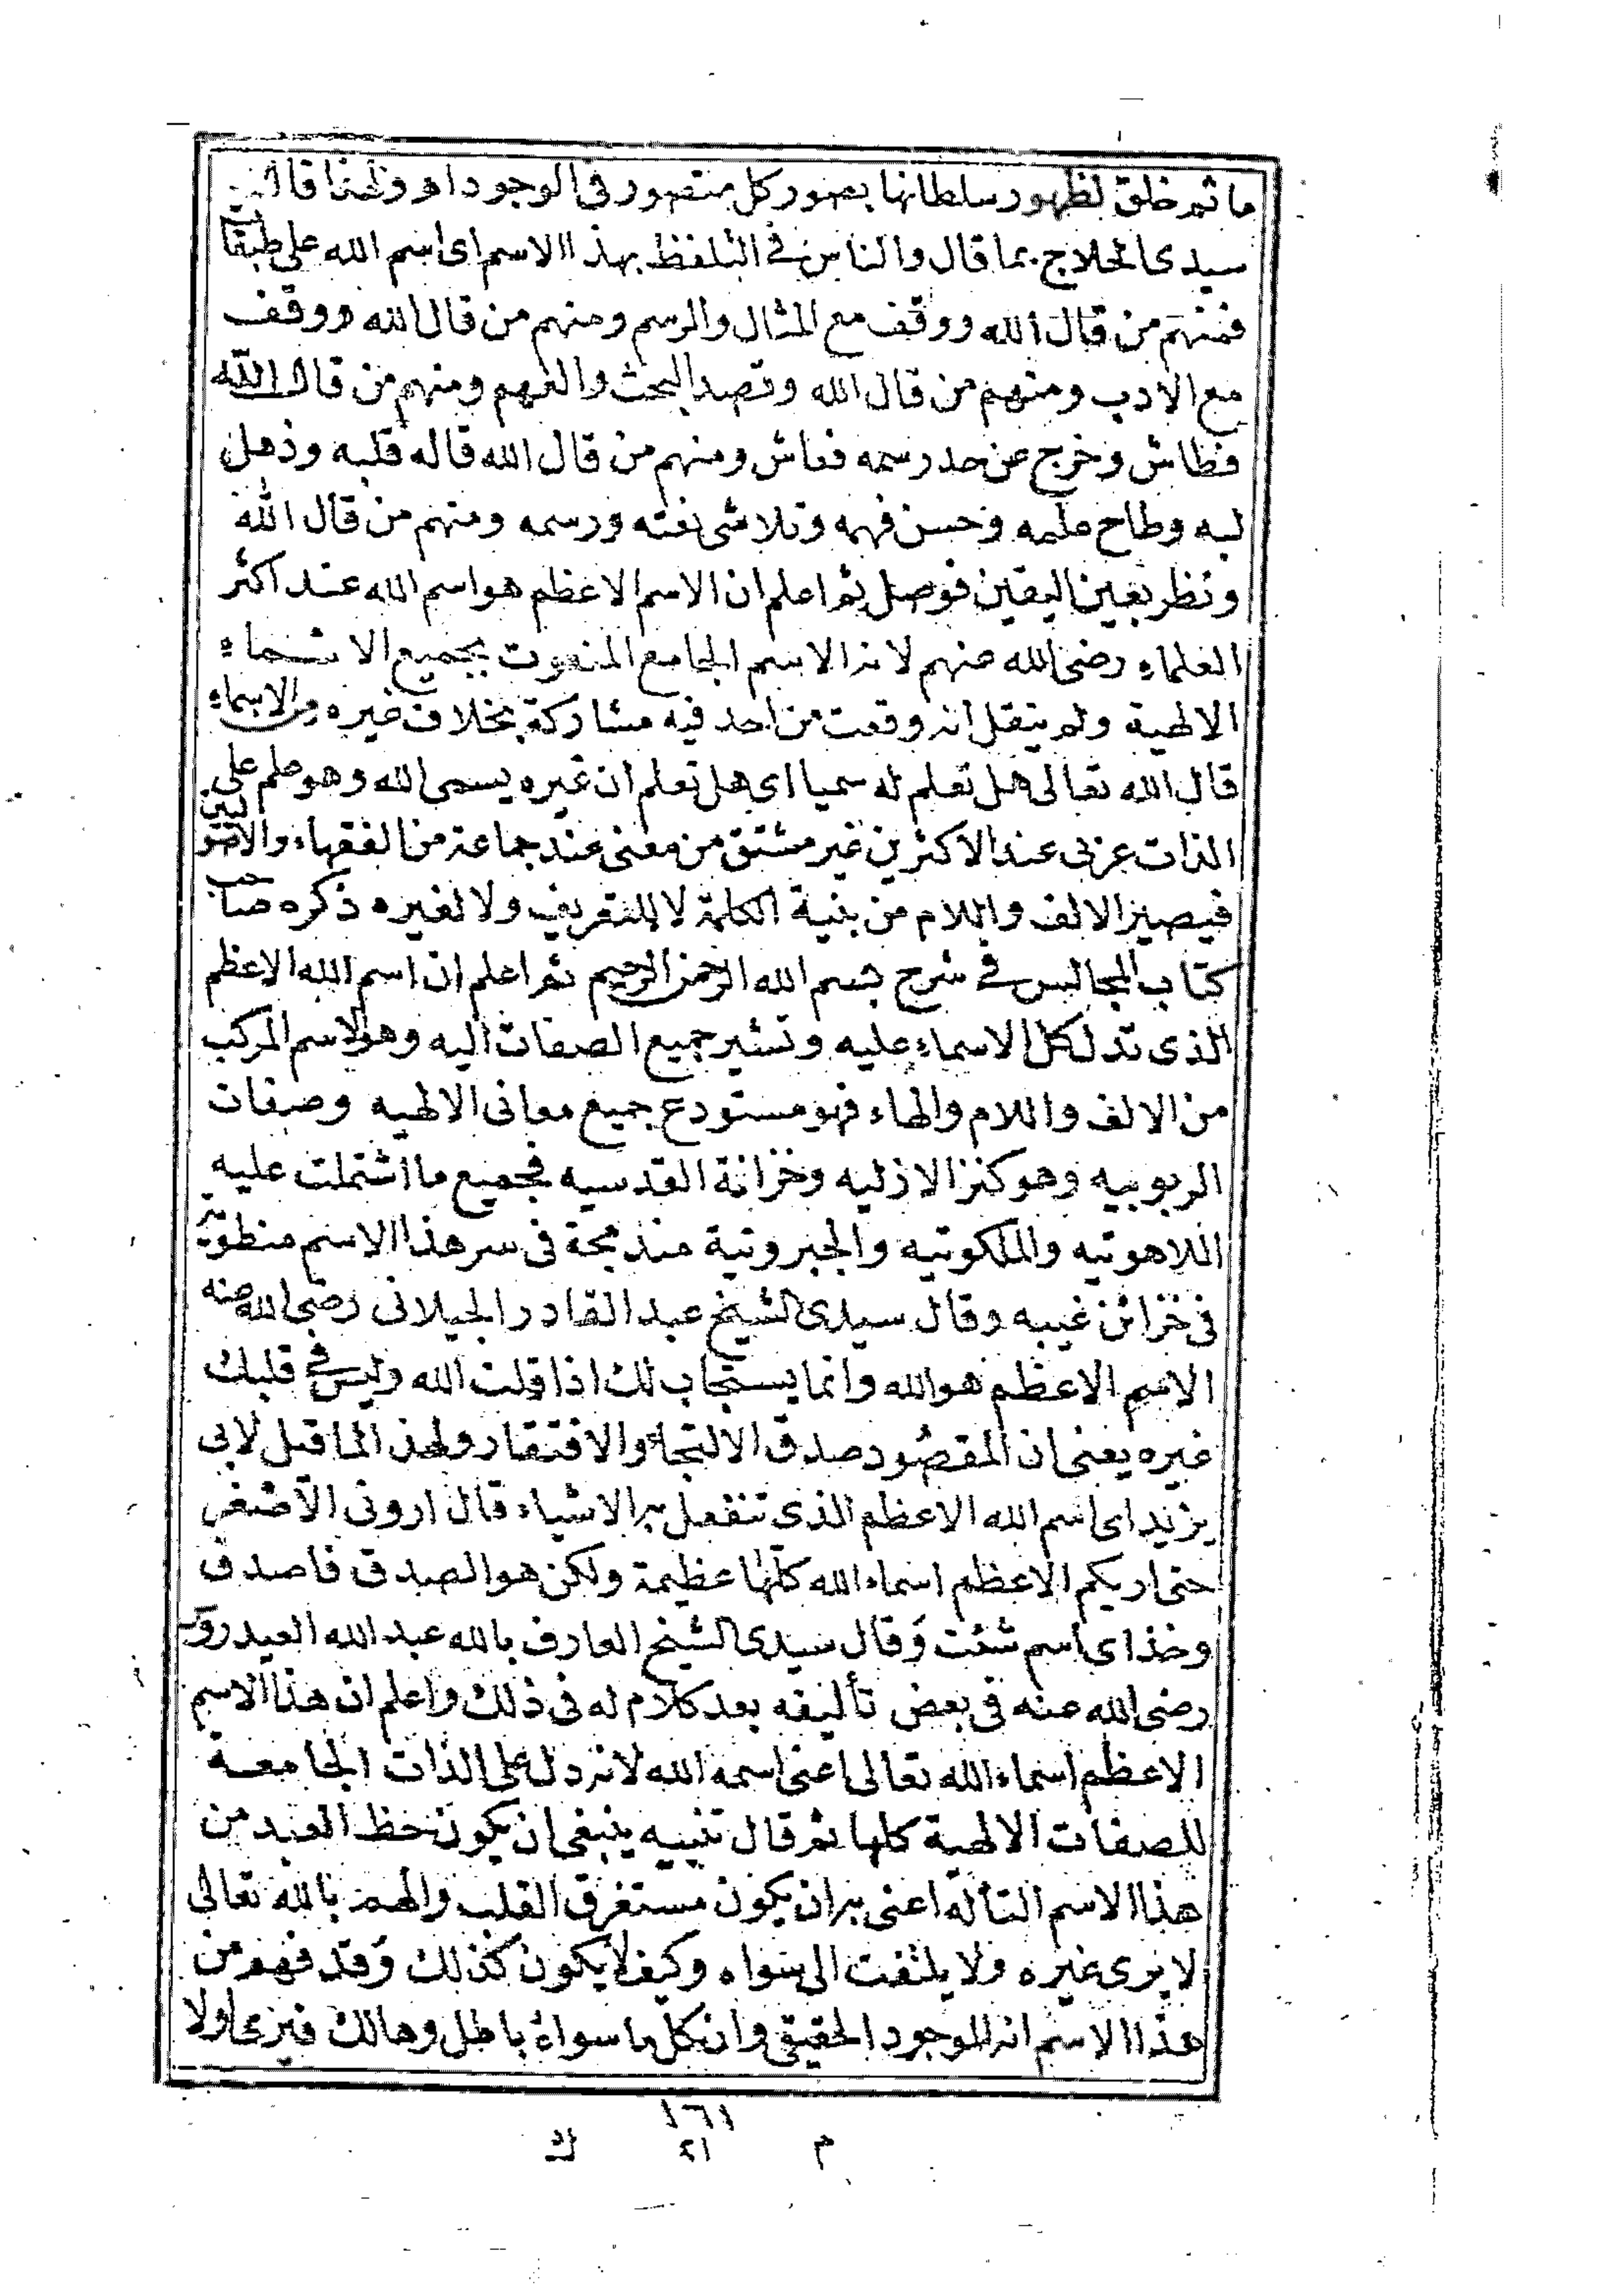 ما ثم خلق لظهور سلطانها بصور كل متصور في الوجود اهـ ولهذا قال
سيدى الحلاج بما قال والناس في التلفظ بهذا الاسم اى اسم الله على طبقات
فمنهم من قال الله ووقف مع المثال والرسم ومنهم من قال الله ووقف
مع الادب ومنهم من قال الله وقصد البحث والفهم ومنهم من قال الله
فطاش وخرج عن حد رسمه فعاش ومنهم من قال الله قاله قلبه وذهل
لبه وطاح علمه وحسن فهمه وتلاشى نعته ورسمه ومنهم من قال الله
ونظر بعين اليقين فوصل ثم اعلم ان الاسم الاعظم هو اسم الله عند اكثر
العلماء رضى الله عنهم لانه الاسم الجامع المنعوت بجميع الاسماء
الالهية ولم ينقل انه وقعت من احد فيه مشاركة بخلاف غيره من الاسماء
قال الله تعالى هل تعلم له سميا اى هل تعلم ان غيره يسمى الله وهو علم على
الذات عربى عند الاكثرين غير مشتق من معنى عند جماعة من الفقهاء والاصوليين
فيصير الالف واللام من بنية الكلمة لا للتعريف ولا لغيره ذكره صاحب
كتاب المجالس في شرح بسم الله الرحمن الرحيم ثم اعلم ان اسم الله الاعظم
الذى تدل كل الاسماء عليه وتشير جميع الصفات اليه وهو الاسم المركب
من الالف واللام والهاء فهو مستودع جميع معانى الالهيه وصفات
الربوبيه وهو كنز الازليه وخزانة القدسيه فجميع ما اشتملت عليه
اللاهوتيه والملكوتيه والجبروتية مندمجة فى سر هذا الاسم منطوية
فى خزائن غيبه وقال سيدى الشيخ عبد القادر الجيلانى رضى الله عنه
الاسم الاعظم هو الله وانما يستجاب لك اذا قلت الله وليس في قلبك
غيره يعنى ان المقصود صدق الالتجاء والافتقار ولهذا لما قيل لابى
يزيد اى اسم الله الاعظم الذى تنفعل به الاشياء قال ارونى الاصغر
حتى اريكم الاعظم اسماء الله كلها عظيمة ولكن هو الصدق فاصدق
وخذ اى اسم شئت وقال سيدى الشيخ العارف بالله عبد الله العيدروس
رضى الله عنه فى بعض تأليفه بعد كلام له فى ذلك واعلم ان هذا الاسم
الاعظم اسماء الله تعالى اعنى اسمه الله لانه دل على الذات الجامعة
للصفات الالهية كلها ثم قال تنبيه ينبغى ان يكون حظ العبد من
هذا الاسم التأله اعنى به ان يكون مستغرق القلب والهم بالله تعالى
لا يرى غيره ولا يلتفت الى سواه وكيف لا يكون كذلك وقد فهم من
هذا الاسم انه الموجود الحقيقى وان كل ما سواه باطل وهالك فيرى اولا
١٦١
م ٢١ ك